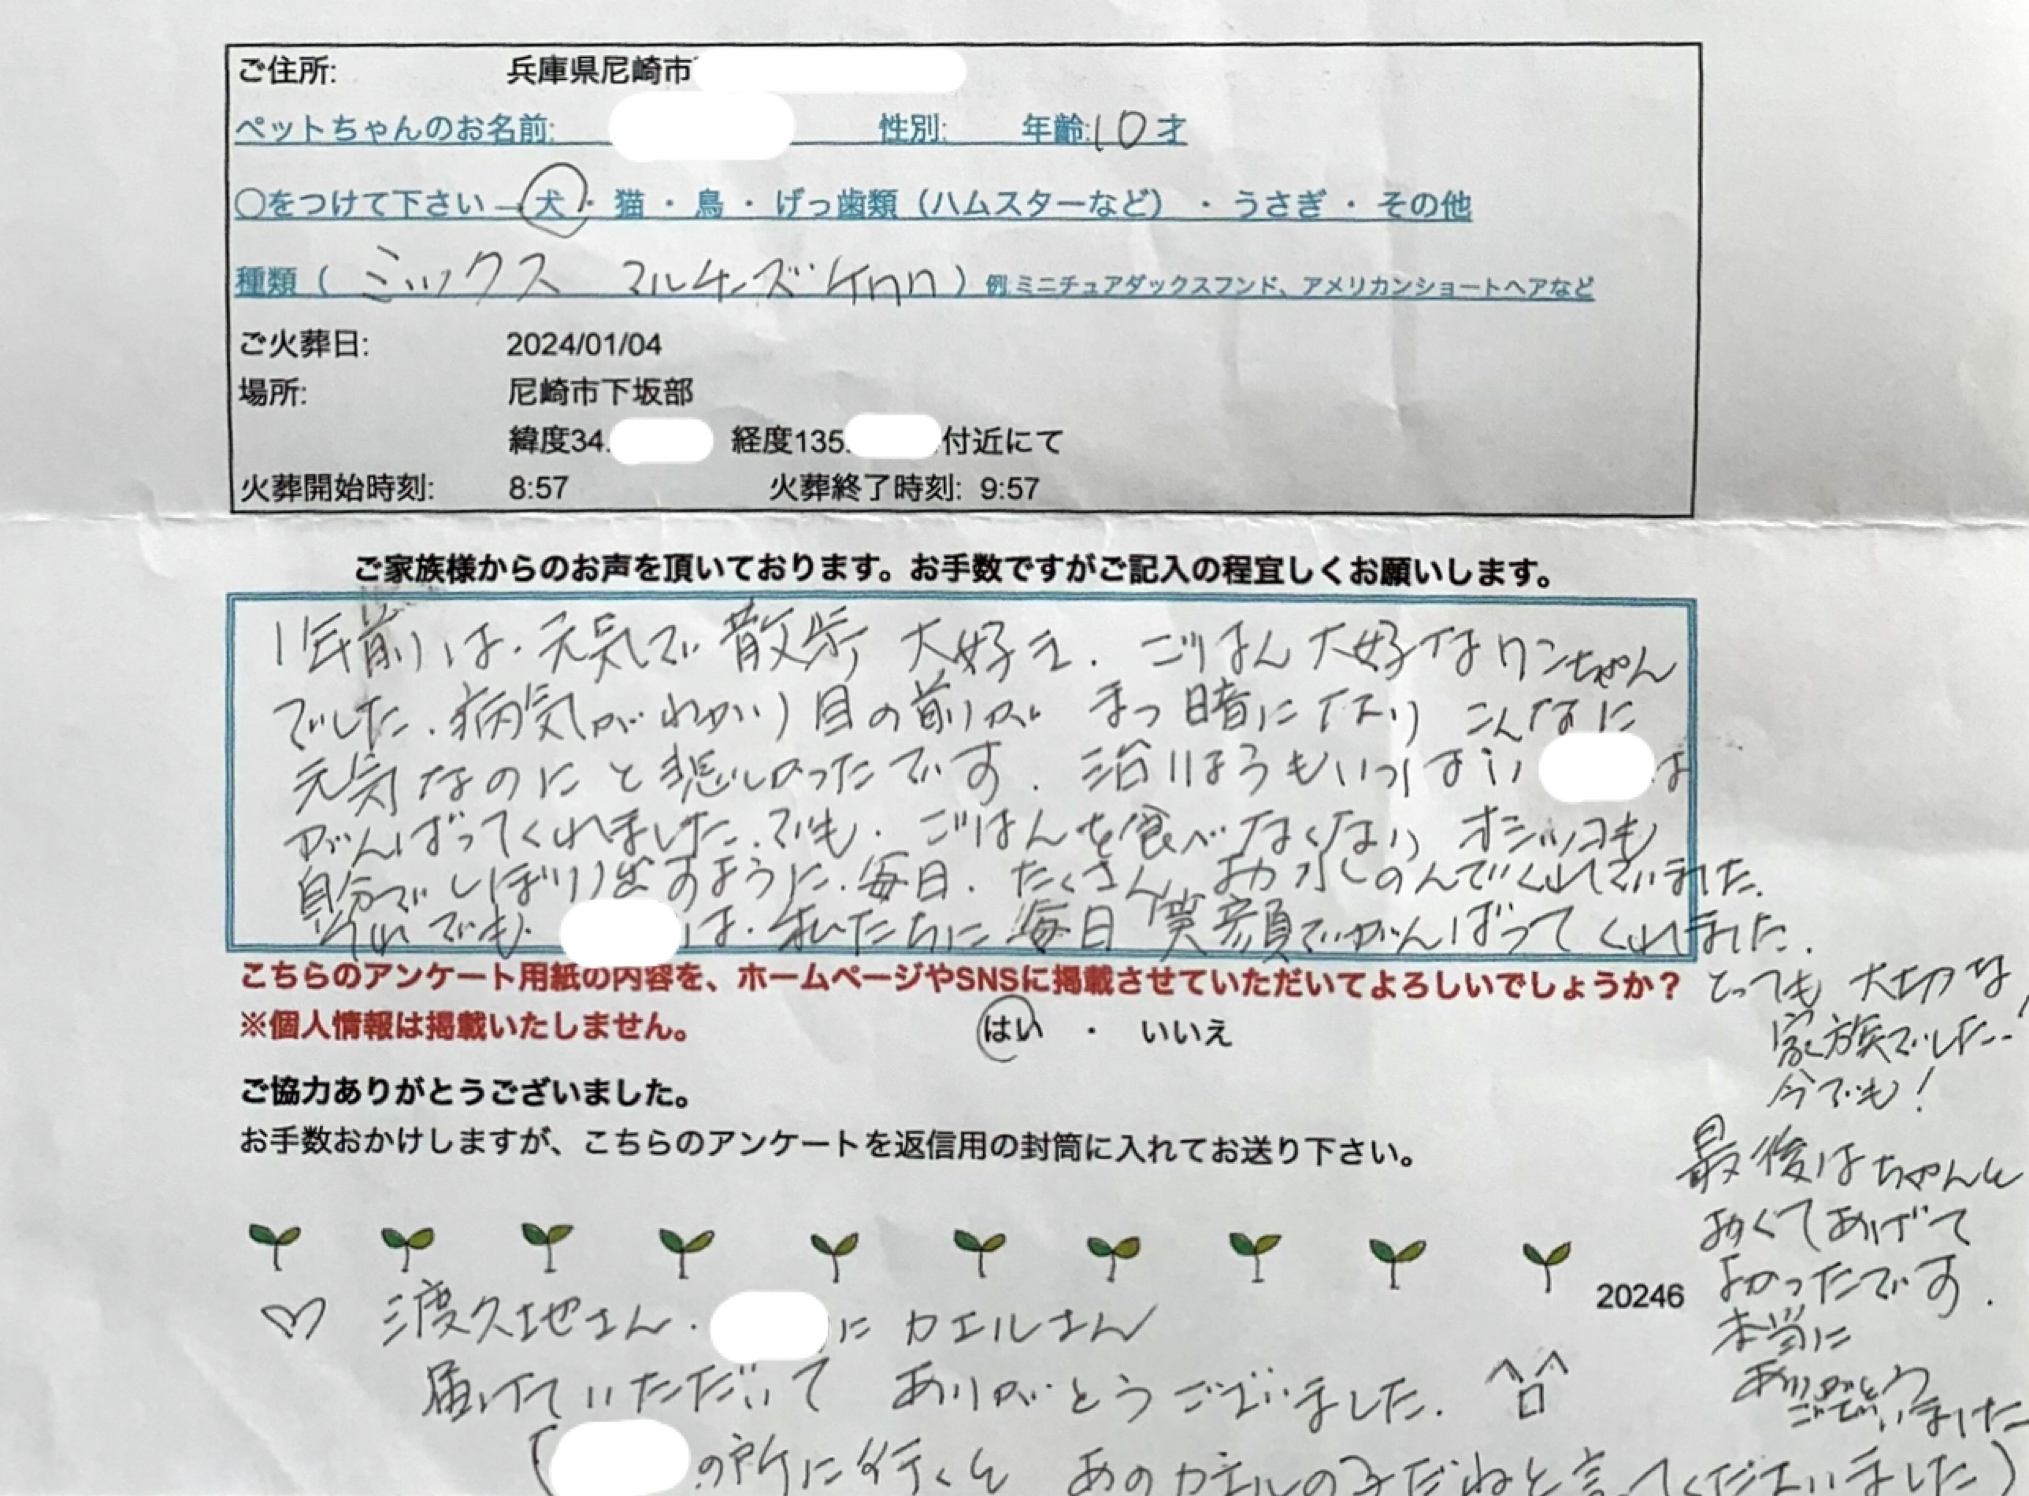 ご住所: 兵庫県尼崎市
ペットちゃんのお名前: 性別: 年齢:10才
〇をつけて下さい→犬・猫・鳥・げっ歯類（ハムスターなど）・うさぎ・その他
種類（ミックス マルチーズ）例:ミニチュアダックスフンド、アメリカンショートヘアなど
ご火葬日: 2024/01/04
場所: 尼崎市下坂部
緯度34. 経度135. 付近にて
火葬開始時刻: 8:57 火葬終了時刻: 9:57
ご家族様からのお声を頂いております。お手数ですがご記入の程宜しくお願いします。
1年前は、元気で散歩大好き、ごはん大好きなワンちゃん
でした。病気がわかり目の前がまっ暗になり こんなに
元気なのにと悲しかったです。治りょうもいっぱい は
がんばってくれました。でも、ごはんを食べなくなり オシッコも
自分でしぼり出すように、毎日、たくさん お水ものんでくれていました。
それでも、 は、私たちに毎日笑顔でがんばってくれました。
とっても大切な
家族でした…!
今でも!
こちらのアンケート用紙の内容を、ホームページやSNSに掲載させていただいてよろしいでしょうか？
※個人情報は掲載いたしません。 はい ・ いいえ
ご協力ありがとうございました。
お手数おかけしますが、こちらのアンケートを返信用の封筒に入れてお送り下さい。
最後はちゃんと
おくてあげて
よかったです。
本当に
ありがとう
ございました
20246
♡ 渡久地さん、 に カエルさん
届けていただいて ありがとうございました。
（ の所に行くと あのカエルの子だねと言ってくださいました）